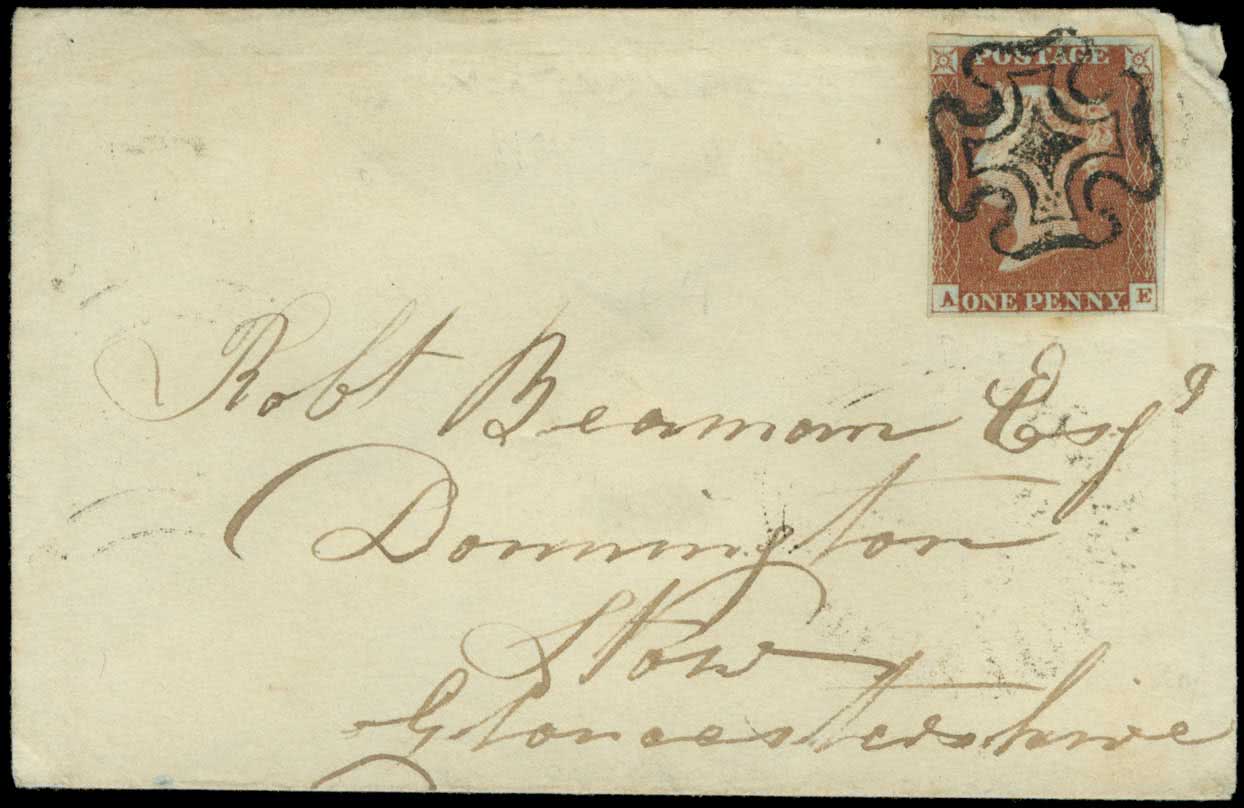 POSTAGE
A ONE PENNY. E
Robt Beaman Esqr
Donnington
Stow
Gloucestershire